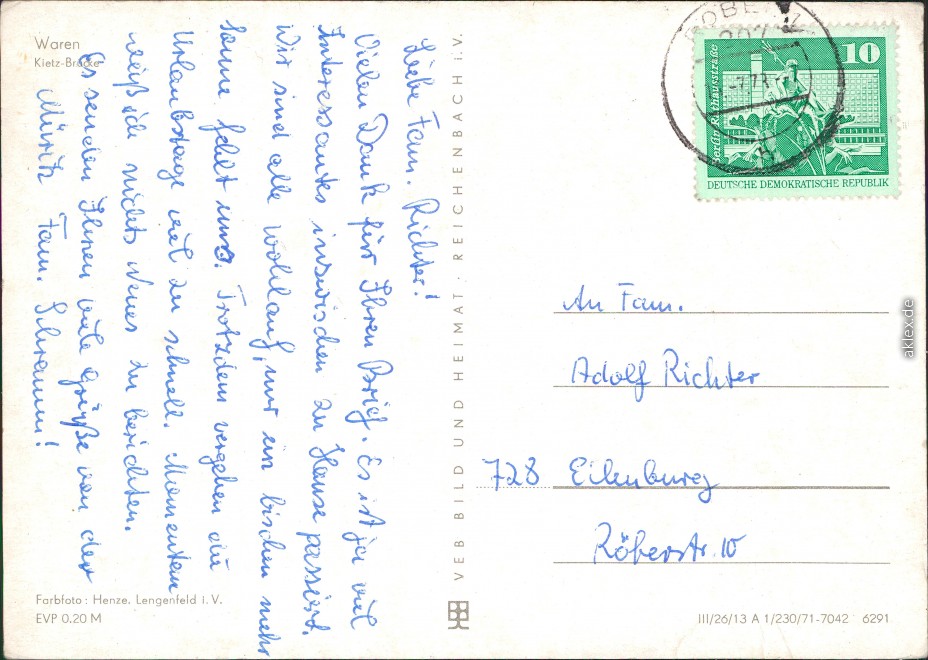 Waren
Kietz-Brücke
Liebe Fam. Richter!
Vielen Dank für Ihren Brief. Es ist ja viel
Interessantes inzwischen zu Hause passiert.
Wir sind alle wohlauf, nur ein bischen mehr
Sonne fehlt uns. Trotzdem vergehen die
Urlaubstage viel zu schnell. Momentan
weiß ich nichts Neues zu berichten.
Es senden Ihnen viele Grüße von der
Müritz Fam. Schramm!
Farbfoto: Henze, Lengenfeld i. V.
EVP 0.20 M
VEB BILD UND HEIMAT · REICHENBACH i. V.
10
Berlin, Rathausstraße
DEUTSCHE DEMOKRATISCHE REPUBLIK
An Fam.
Adolf Richter
728 Eilenburg
Röberstr. 10
III/26/13 A 1/230/71-7042 6291
aklex.de